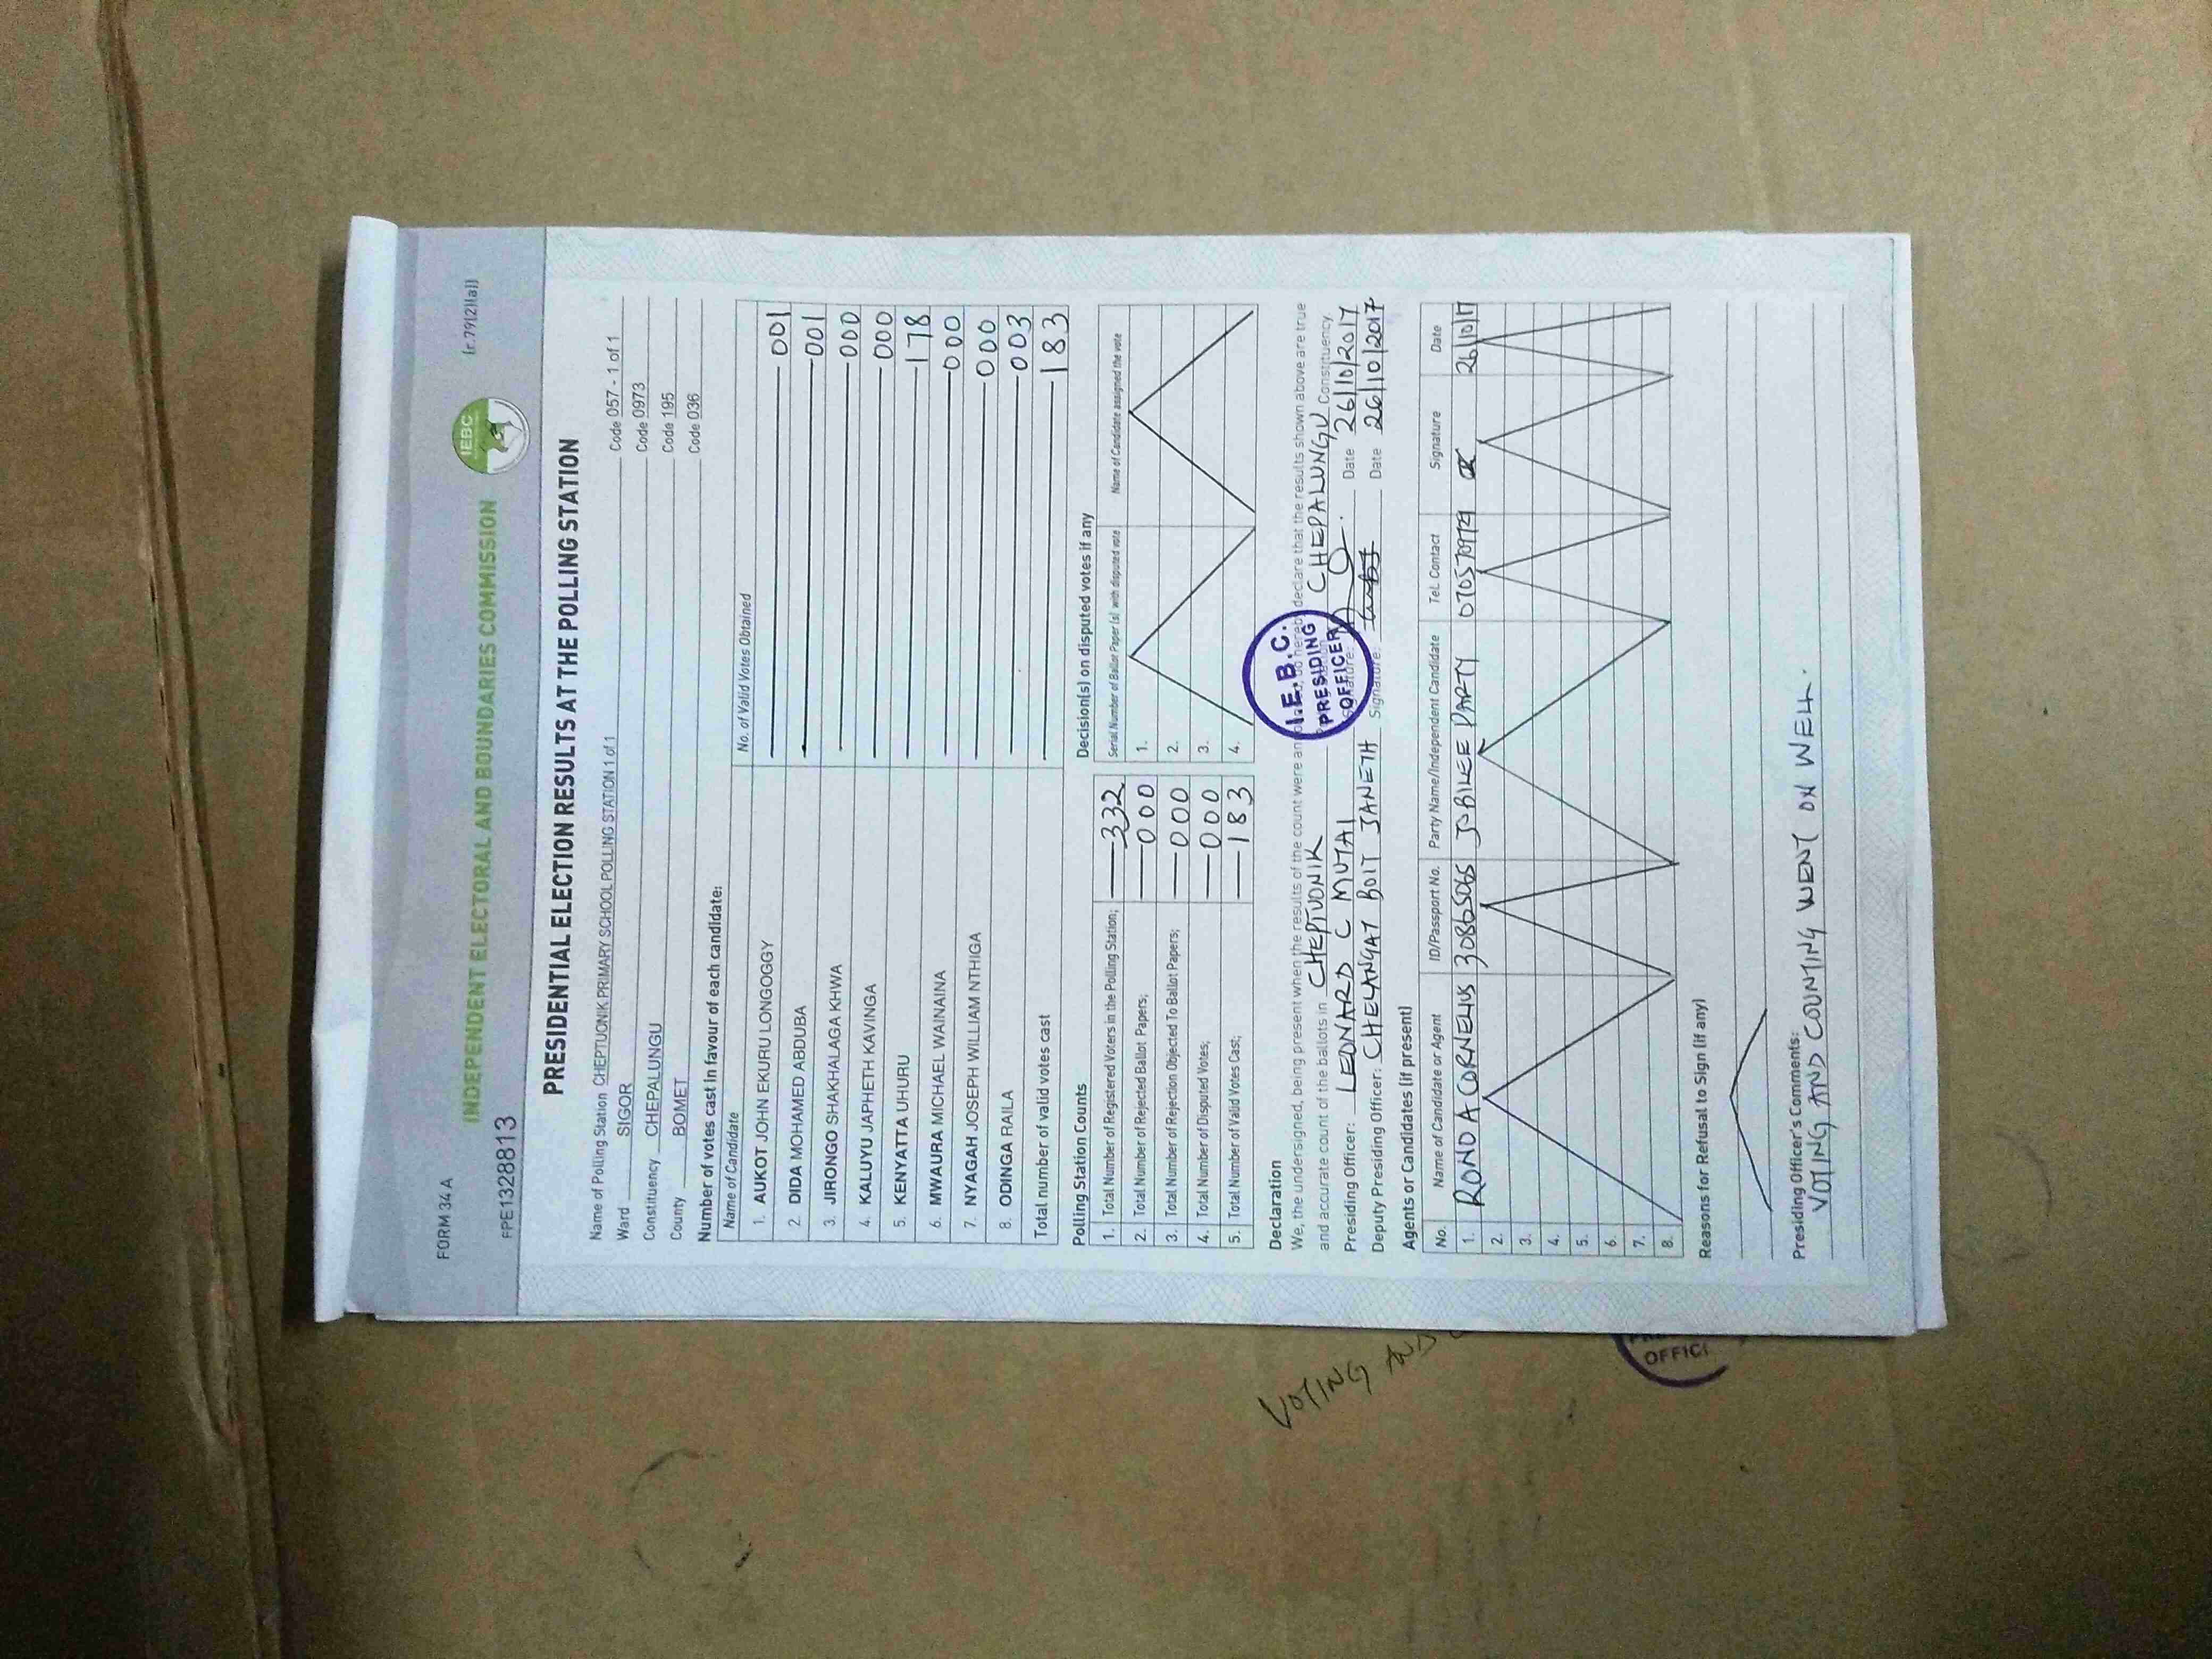 FORM 34 A
(r.79(2)(a))
INDEPENDENT ELECTORAL AND BOUNDARIES COMMISSION
IEBC
FPE1328813
PRESIDENTIAL ELECTION RESULTS AT THE POLLING STATION
Name of Polling Station CHEPTUONIK PRIMARY SCHOOL POLLING STATION 1 of 1 Code 057 - 1 of 1
Ward SIGOR Code 0973
Constituency CHEPALUNGU Code 195
County BOMET Code 036
Number of votes cast in favour of each candidate:
Name of Candidate No. of Valid Votes Obtained
1. AUKOT JOHN EKURU LONGOGGY 001
2. DIDA MOHAMED ABDUBA 001
3. JIRONGO SHAKHALAGA KHWA 000
4. KALUYU JAPHETH KAVINGA 000
5. KENYATTA UHURU 178
6. MWAURA MICHAEL WAINAINA 000
7. NYAGAH JOSEPH WILLIAM NTHIGA 000
8. ODINGA RAILA 003
Total number of valid votes cast 183
Polling Station Counts
1. Total Number of Registered Voters in the Polling Station; 332
2. Total Number of Rejected Ballot Papers; 000
3. Total Number of Rejection Objected To Ballot Papers; 000
4. Total Number of Disputed Votes; 000
5. Total Number of Valid Votes Cast; 183
Decision(s) on disputed votes if any
Serial Number of Ballot Paper (s) with disputed vote Name of Candidate assigned the vote
1.
2.
3.
4.
Declaration
We, the undersigned, being present when the results of the count were hereby declare that the results shown above are true
and accurate count of the ballots in CHEPTUONIK CHEPALUNGU Constituency
Presiding Officer: LEONARD C MUTAI Date 26/10/2017
Deputy Presiding Officer: CHELANGAT BOIT JANETH Signature: Date 26/10/2017
I.E.B.C.
PRESIDING
OFFICER
Agents or Candidates (if present)
No. Name of Candidate or Agent ID/Passport No. Party Name/Independent Candidate Tel. Contact Signature Date
1. RONO A CORNELIUS 30865065 JUBILEE PARTY 26/10/17
2.
3.
4.
5.
6.
7.
8.
Reasons for Refusal to Sign (if any)
Presiding Officer's Comments:
VOTING AND COUNTING WENT ON WELL.
VOTING AND